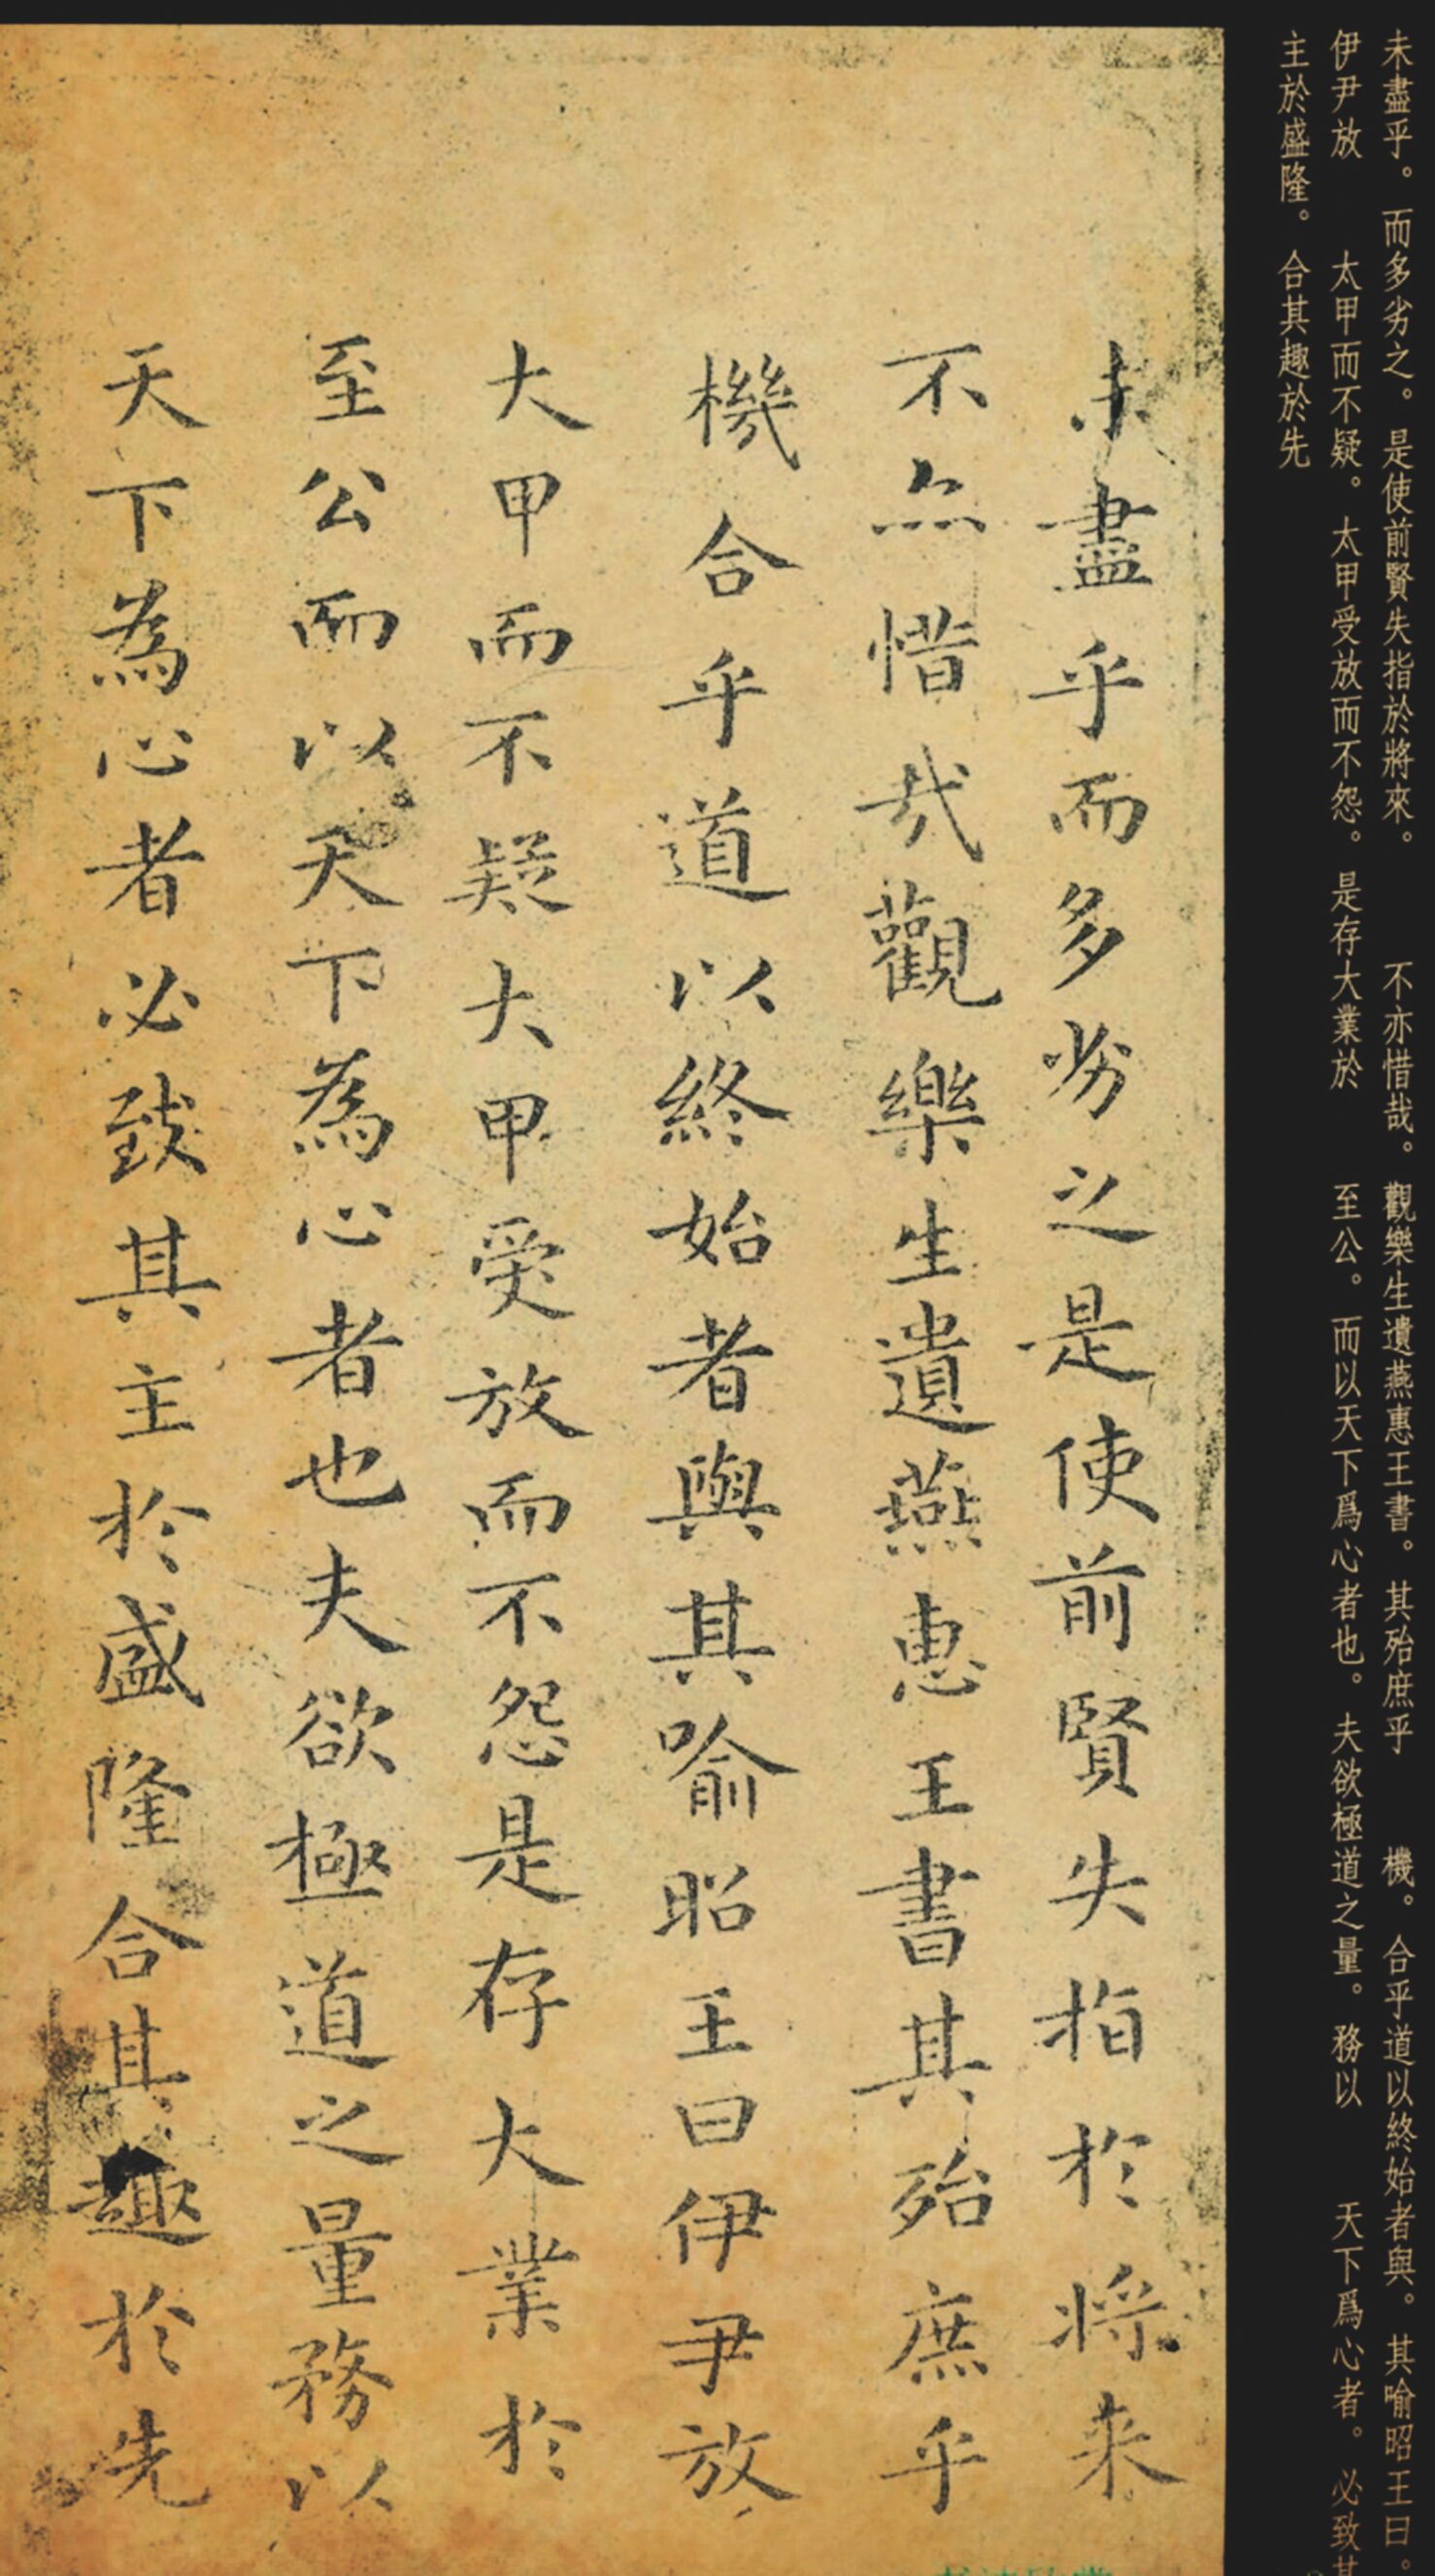 未盡乎。而多劣之。是使前賢失指於將來。不亦惜哉。觀樂生遺燕惠王書。其殆庶乎機。合乎道以終始者與。其喻昭王曰。
伊尹放太甲而不疑。太甲受放而不怨。是存大業於至公。而以天下爲心者也。夫欲極道之量。務以天下爲心者。必致其
主於盛隆。合其趣於先
未盡乎而多劣之是使前賢失指於將来
不亦惜哉觀樂生遺燕惠王書其殆庶乎
機合乎道以終始者與其喻昭王曰伊尹放
大甲而不疑大甲受放而不怨是存大業於
至公而以天下為心者也夫欲極道之量務以
天下為心者必致其主於盛隆合其趣於先